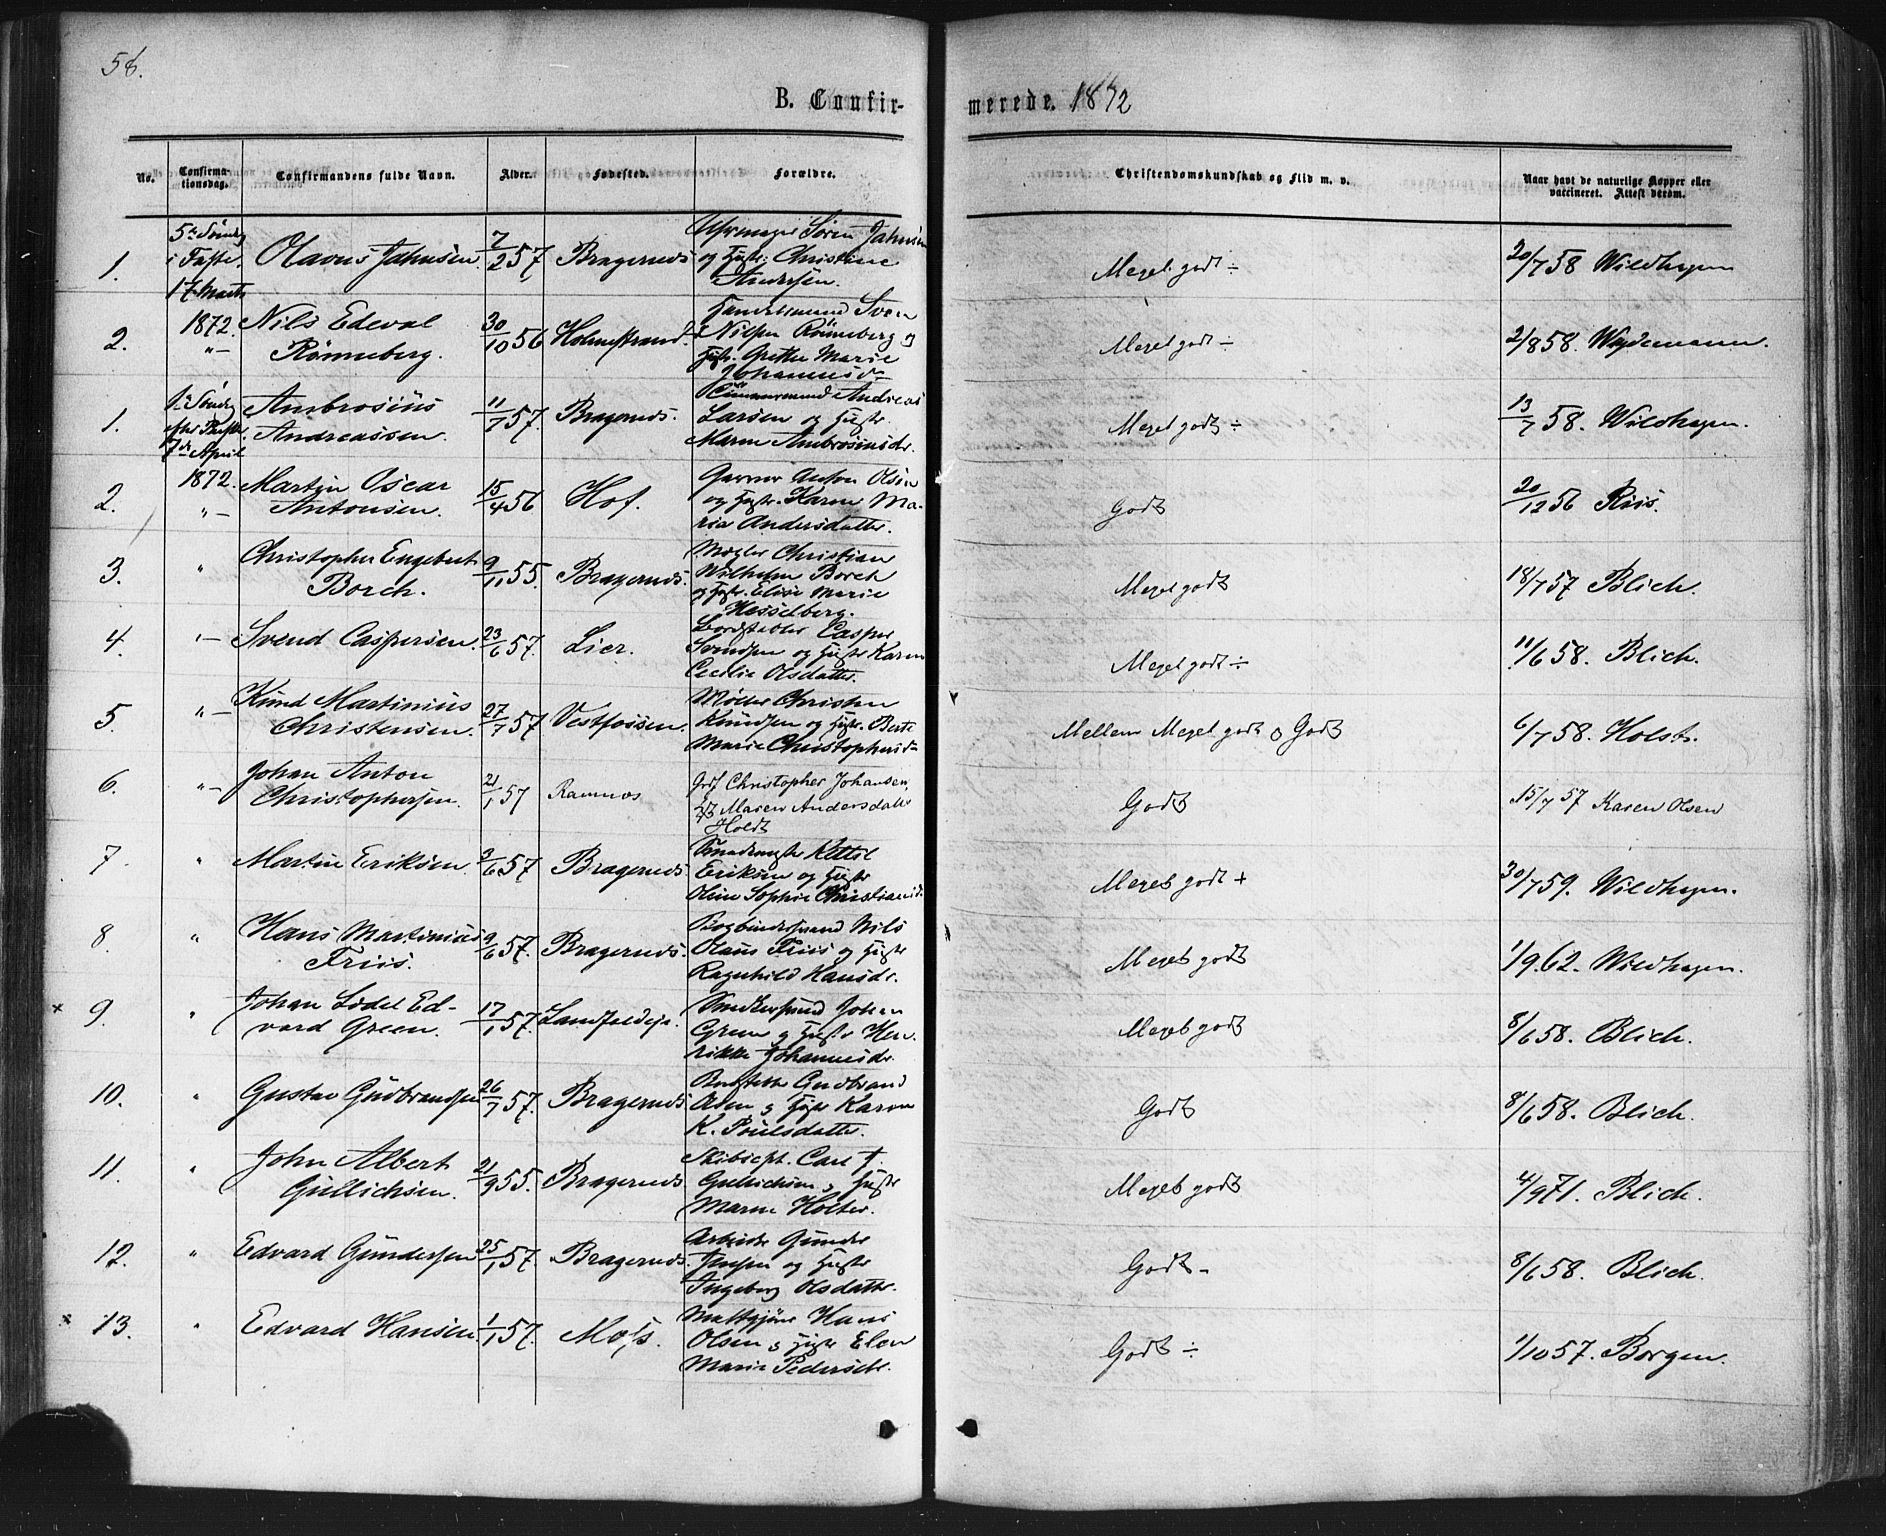 56.
B. Confir- merede. 1872
No. Confirma-tionsdag. Confirmandens fulde Navn. Alder. Fødested. Forældre. Christendomskundskab og Flid m. v. Naar havt de naturlige Kopper eller vaccineret. Attest derom.
5te Søndag
i Faste.
17 Marts
1872.
1. Olavus Jahnsen. 7/2 57 Bragernæs
Søren Jahnsen
og Hustr: Christine
Andersen.
Meget godt ÷ 20/7 58 Wildhagen
2. "— Nils Edeval
Rønneberg. 30/10 56 Holmestrand.
Sven
Nilsen Rønneberg og
Hustr. Grethe Marie
Johannesd.
Meget godt ÷ 2/8 58. Wejdemann.
1ste Søndag
efter Paaske
7de April
1872.
1. Ambrosius
Andreassen. 11/7 57. Bragernæs.
Tømmermand Andreas
Larsen og Hustr
Maren Ambrosiusdr.
Meget godt ÷ 13/7 58. Wildhagen.
2. "— Martin Oscar
Antonsen. 15/4 56 Hof.
Garver Anton Olsen
og Hustr. Karen Ma-
ria Andersdatter.
Godt 20/12 56 Riis.
3. " Christopher Engebert
Borch. 9/11 55. Bragernæs.
Mægler Christian
Wilhelm Borch
og Hustr. Elise Marie
Hesselberg.
Meget godt 18/7 57 Blich.
4. "— Svend Caspersen. 23/6 57. Lier.
Bordstabler Casper
Svendsen og Hustr Karen
Cecilie Olsdatter.
Meget godt ÷ 11/6 58. Blich.
5. "— Knud Martinius
Christensen. 27/7 57 Vestfossen.
Møller Christen
Knudsen og Hustr. Berte
Marie Christophersd.
Mellem Meget godt og Godt 6/7 58. Holst.
6. "— Johan Anton
Christophersen. 21/1 57 Ramnæs
Christopher Johansen,
Maren Andersdatter
Holdt
Godt 15/7 57 Karen Olsen
7. " Martin Eriksen. 3/6 57 Bragernæs.
Kittil
Eriksen og Hustr
Oline Sophie Christiansd.
Meget godt + 30/7 59. Wildhagen.
8. " Hans Martinius
Friis. 9/6 57. Bragernæs.
Bogbindersvend Nils
Olaus Friis og Hustr
Ragnhild Hansdr.
Meget godt 1/9 62. Wildhagen.
× 9. " Johan Lodel Ed-
vard Green. 17/1 57. Landfaldøje.
Snedkersvend Johan
Green og Hustr Hen-
rikke Johannesdr.
Meget godt 8/6 58. Blich.
10. " Gustav Gudbrandsen 26/7 57. Bragernæs
Gudbrand
Olsen og Hustr Karen
K. Poulsdatter.
Godt 8/6 58. Blich.
11. " John Albert
Gullichsen. 21/9 55. Bragernæs
Skibscpt. Carl J.
Gullichsen og Hustr
Maren Holter.
Meget godt 4/9 71. Blich.
12. " Edvard Gundersen 25/1 57. Bragernæs.
Arbeider Gunder
Jensen og Hustr
Ingeborg Olsdatter.
Godt - 8/6 58. Blich.
× 13. " Edvard Hansen. 1/1 57. Moss.
Hans
Olsen og Hustr Elen
Marie Pedersdr.
Godt ÷ 1/10 57. Borgen.